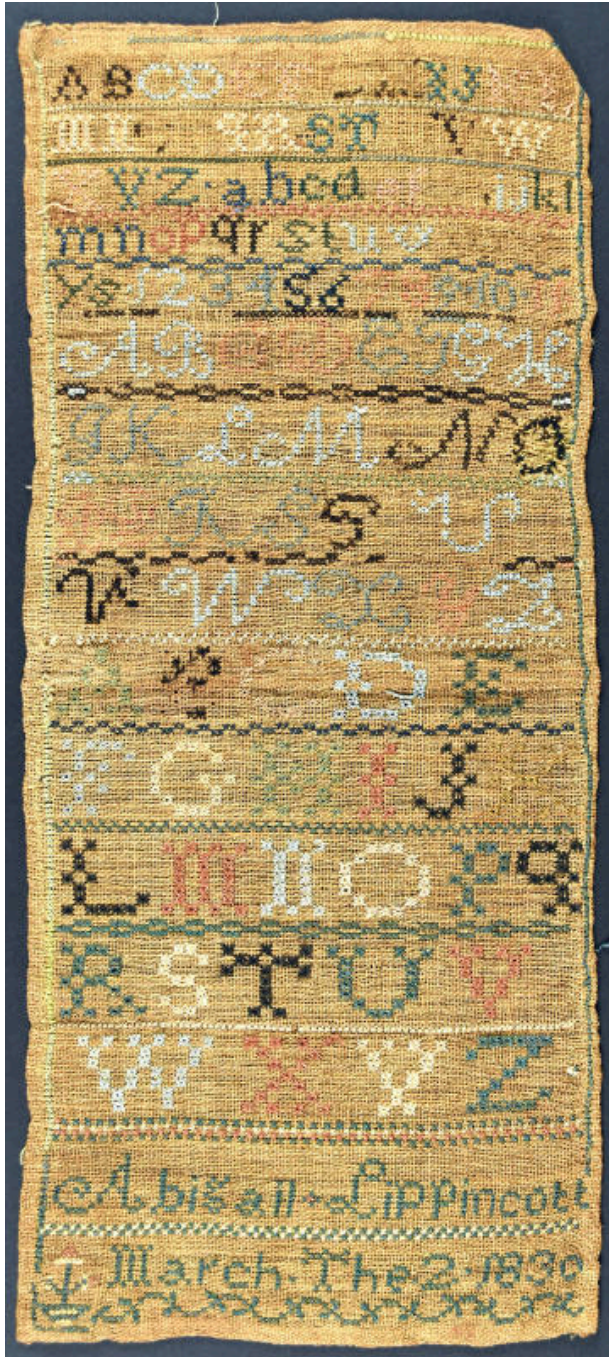 A B C D E F I J K L
M N Q R S T V W
X Y Z · a b c d e f i j k l
m n o p q r s t u v
y z 1 2 3 4 5 6 7 8 9 10 11
A B C D E F G H
I K L M N O
P Q R S S U
V W X Y Z
A P C D E
F G H I J K
L M N O P q
R S T U V
W X Y Z
Abigail · Lippincott
March · The 2 · 1830